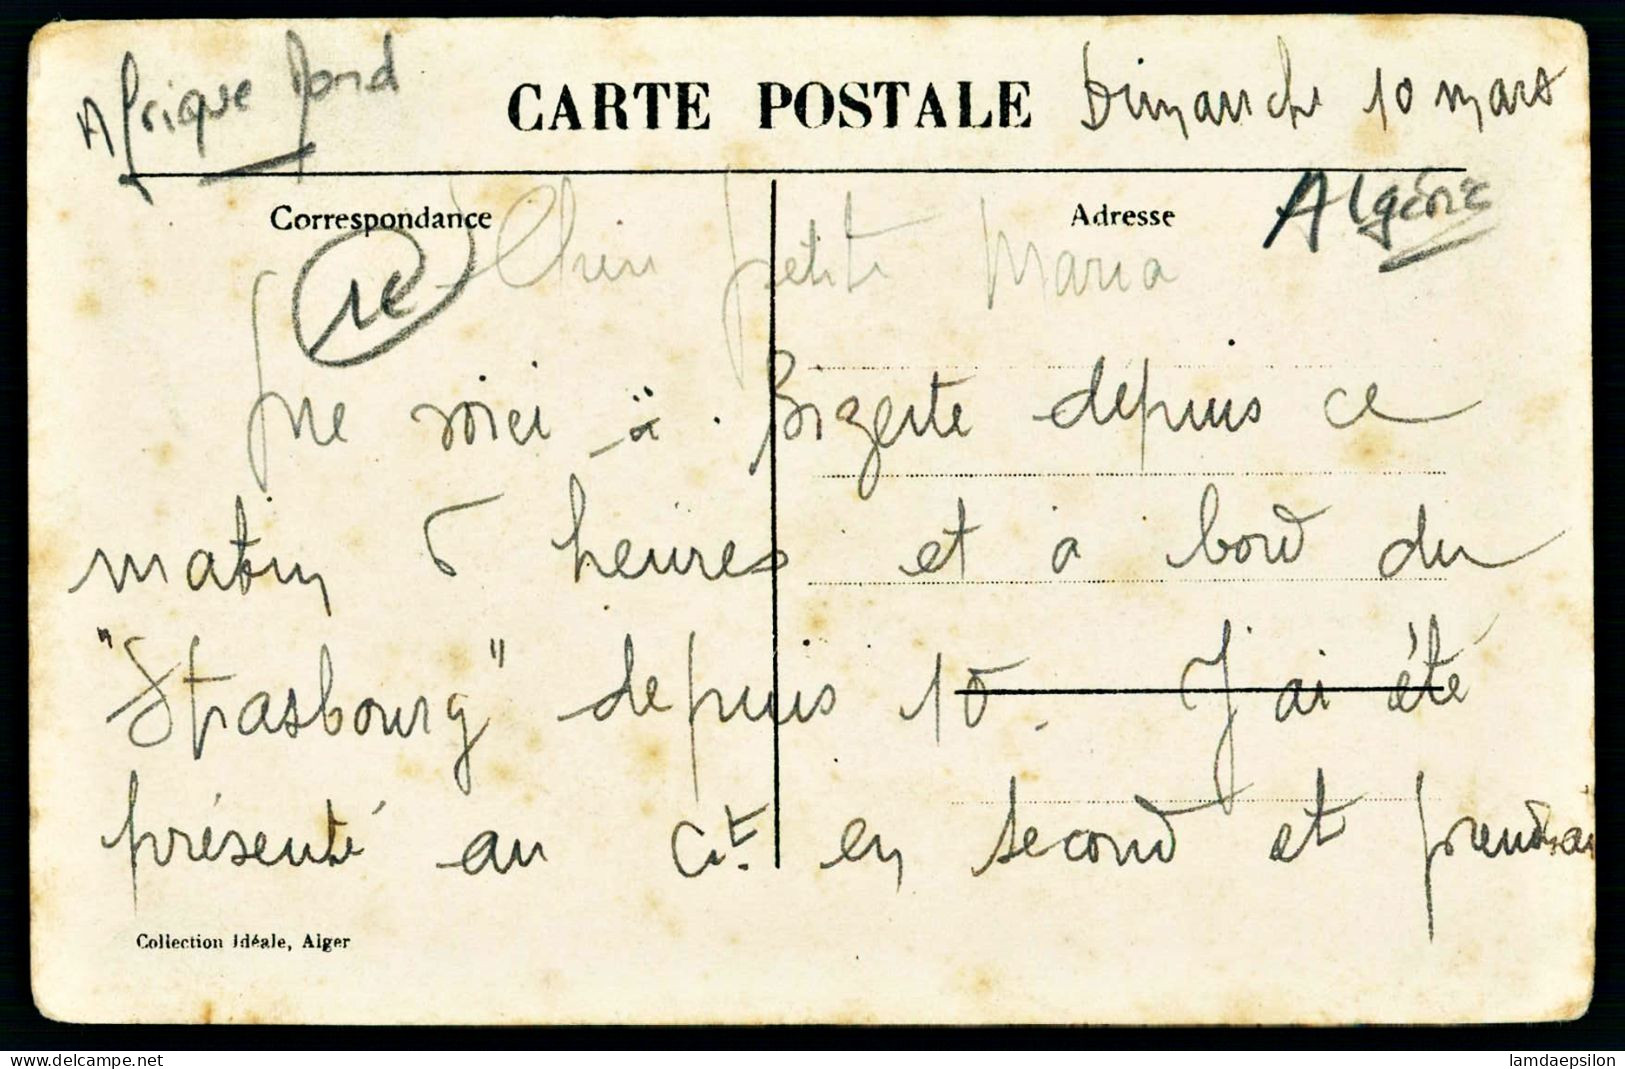 Afrique Nord
CARTE POSTALE Dimanche 10 mars
Correspondance
Adresse
Algérie
petite Maria
me voici à Bizerte depuis ce
matin 5 heures et à bord du
"Strasbourg" depuis 10. J'ai été
présenté au Ct. en second et prendrai
Collection Idéale, Alger
www.delcampe.net
lamdaepsilon